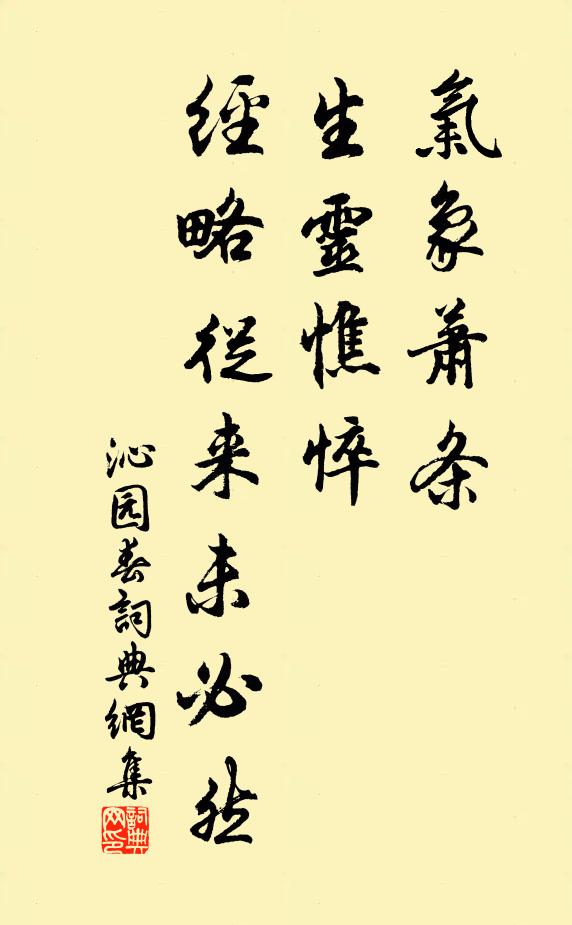 氣象蕭条
生靈憔悴
經略從来未必然
沁园春詞典網集
詞典网印